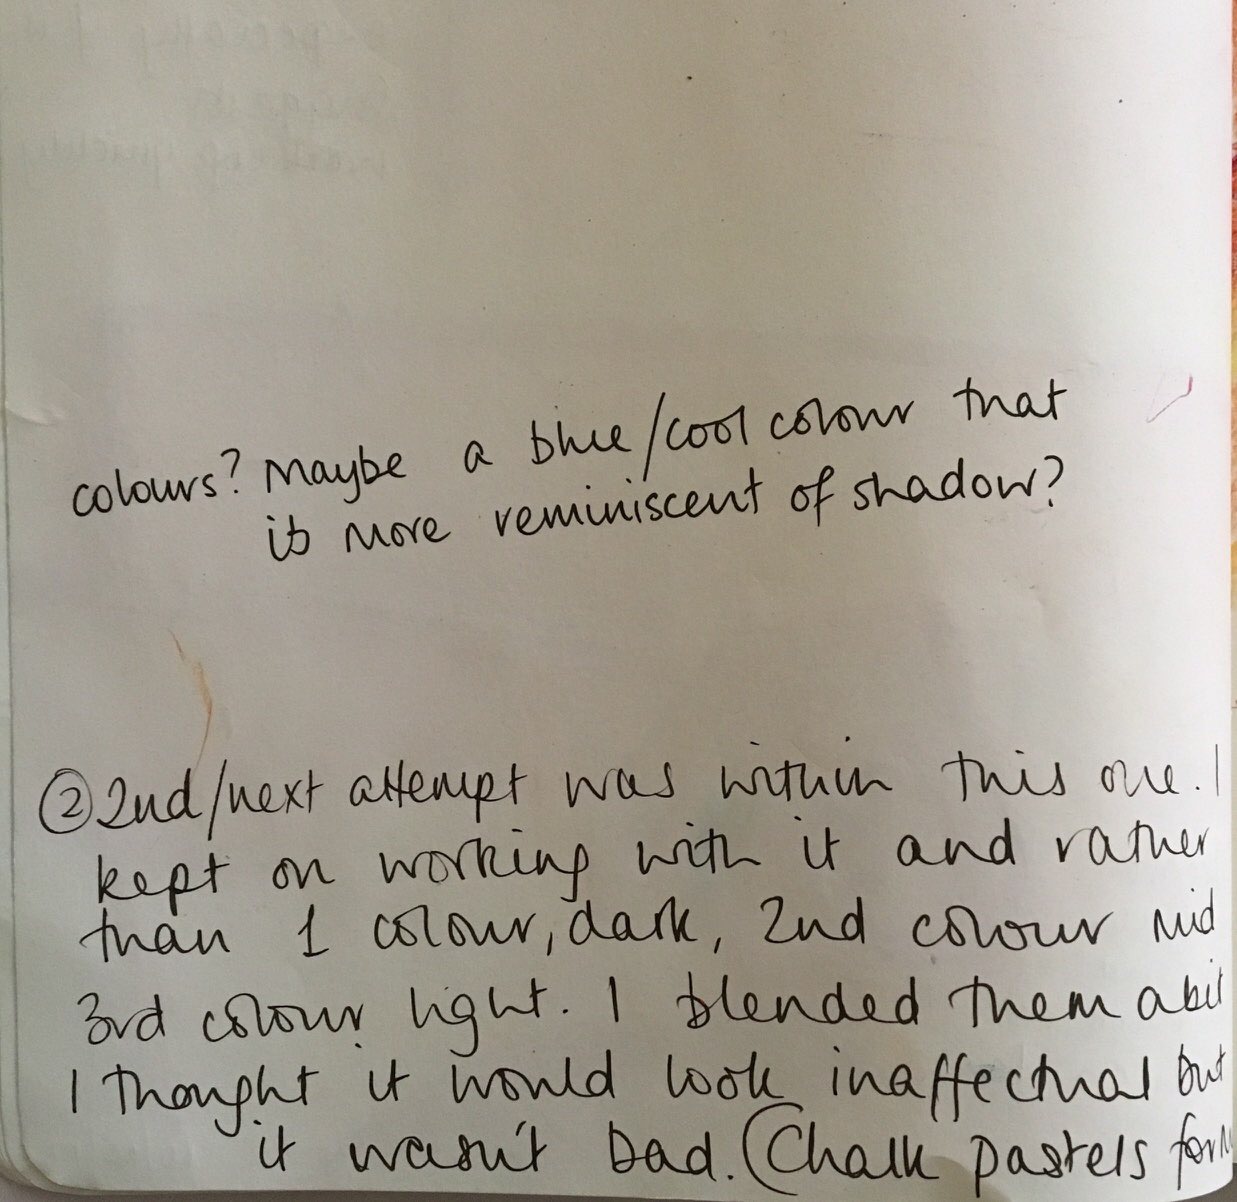 colours? Maybe a blue/cool colour that
is more reminiscent of shadow?
② 2nd/next attempt was within this one. I
kept on working with it and rather
than 1 colour, dark, 2nd colour mid
3rd colour light. I blended them a bit
I thought it would look inaffectual but
it wasn't bad. (Chalk pastels